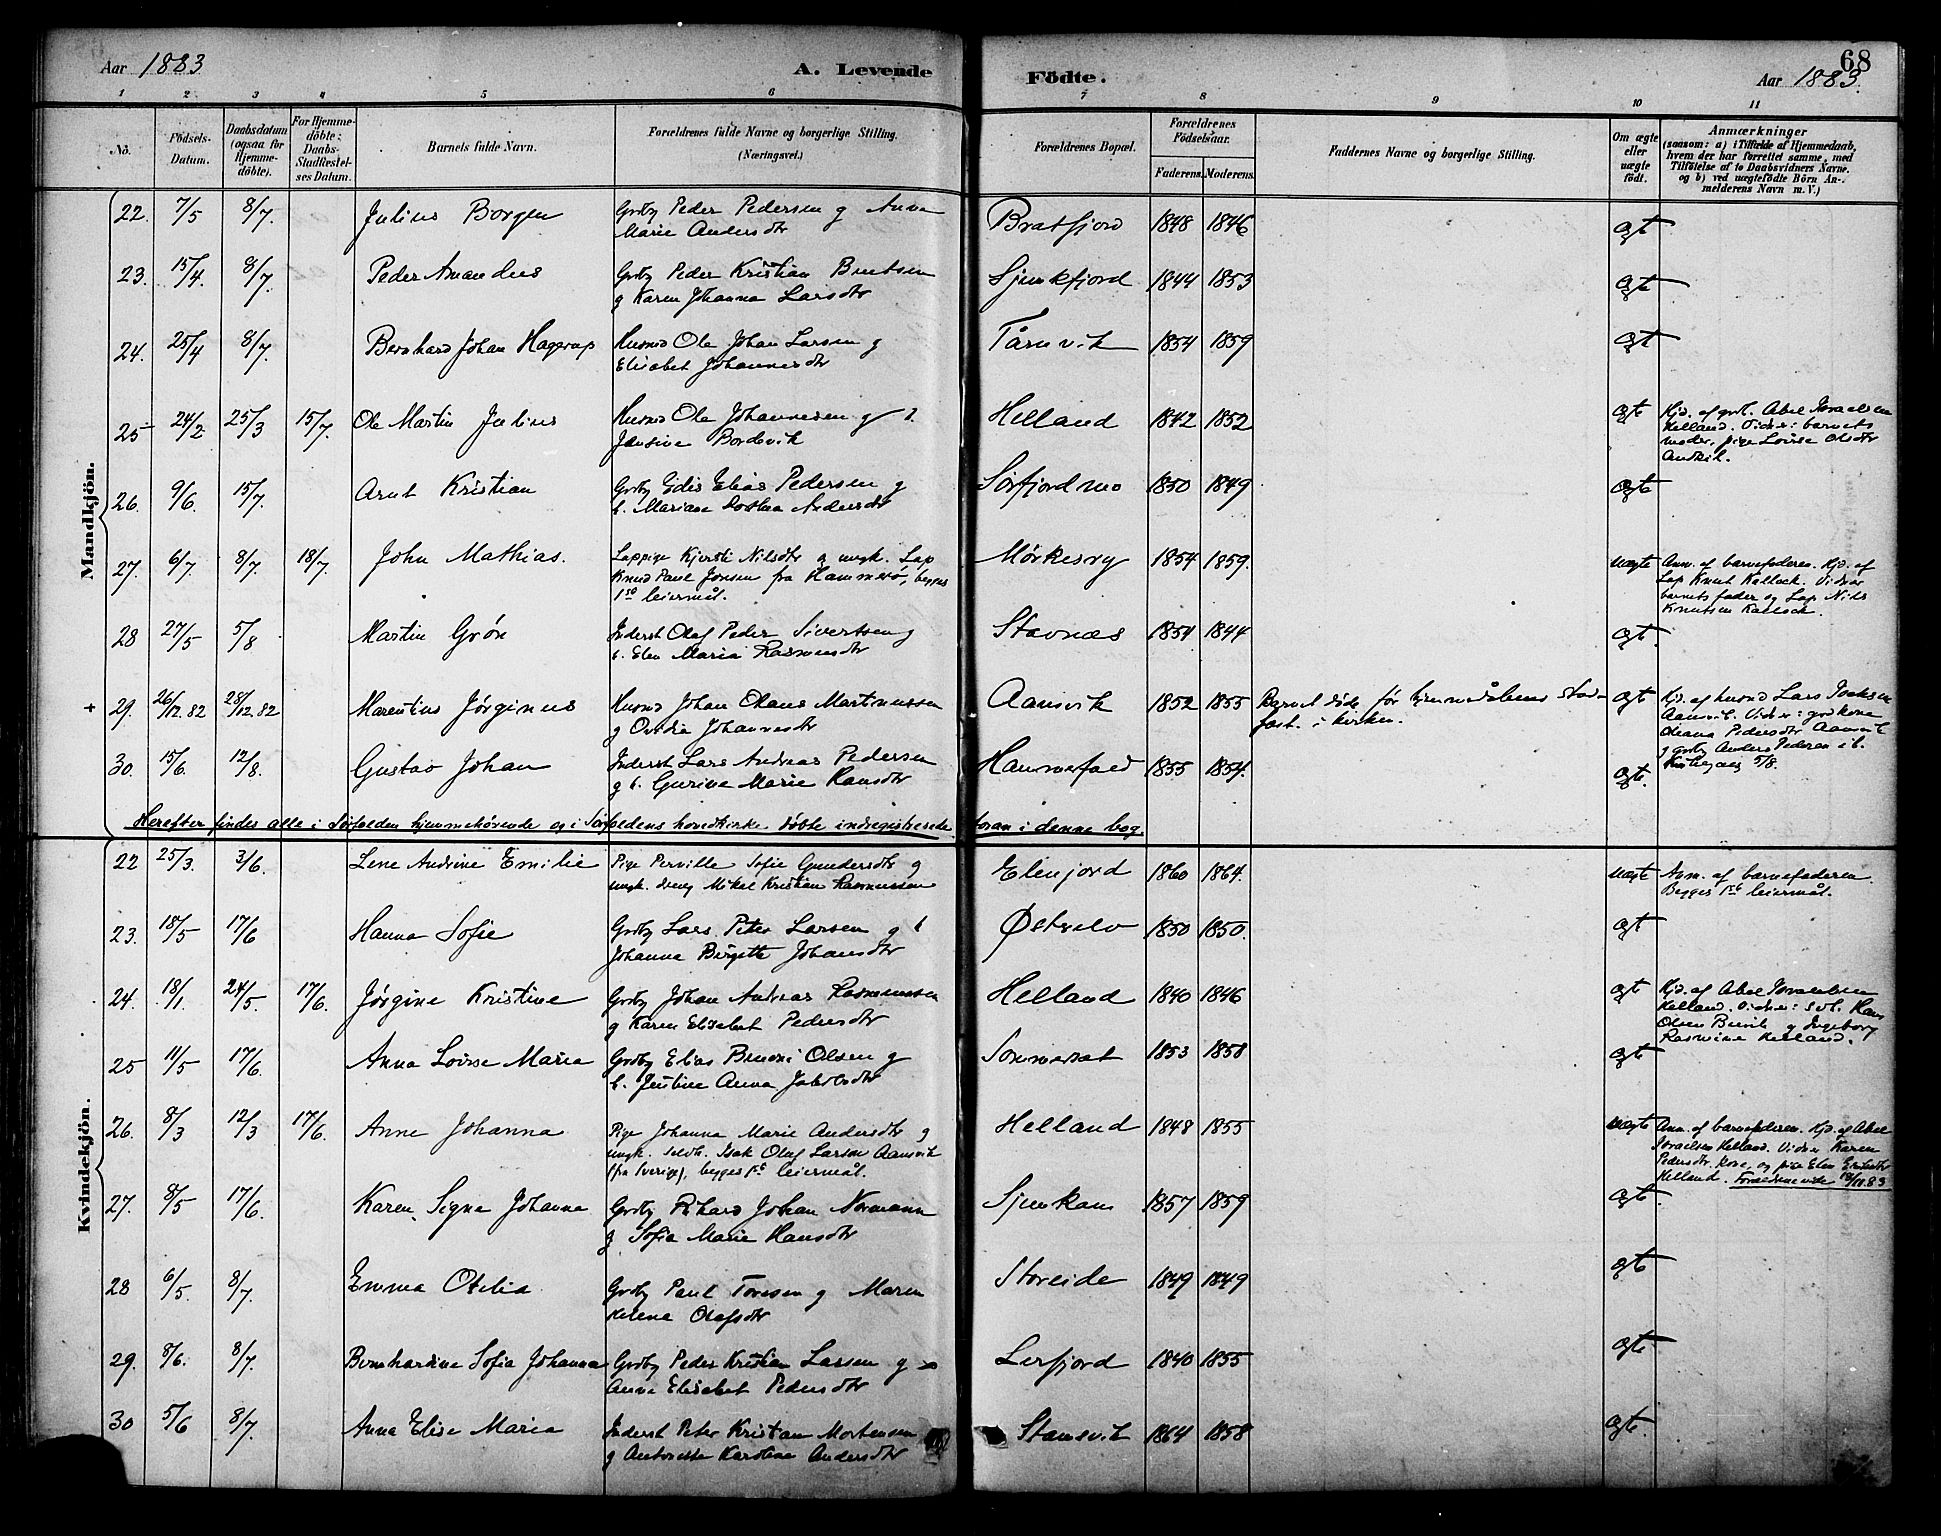 68
Aar 1883
A. Levende Födte.
Aar 1883.
1 2 3 4 5 6 7 8 9 10 11
No.
Födsels-
Datum.
Daabsdatum
(ogsaa for
Hjemme-
döbte).
For Hjemme-
döbte:
Daabs-
Stadfæstel-
ses Datum.
Barnets fulde Navn.
Forældrenes fulde Navne og borgerlige Stilling.
(Næringsvei.)
Forældrenes Bopæl.
Forældrenes
Födselsaar.
Faderens. Moderens.
Faddernes Navne og borgerlige Stilling.
Om ægte
eller
uægte
født.
Anmærkninger
(saasom: a) i Tilfælde af Hjemmedaab,
hvem der har forrettet samme, med
Tilföielse af to Daabsvidners Navne.
og b) ved uægtefödte Börn An-
melderens Navn m. V.)
Mandkjön.
22. 7/5 8/7. Julius Borgen Grdby Peder Pedersen g Anna Bratfjord 1848 1846 Ægt
Marie Andersdtr
23. 15/4. 8/7. Peder Amandus Grdby Peder Kristian Bentsen Sjunkfjord 1844 1853 Ægt
g Karen Johanna Larsdtr
24. 25/4 8/7. Bernhard Johan Hagerup Husmd Ole Johan Larsen g Tårnvik 1854 1859 Ægt
Elisabet Johannesdtr
25 24/2 25/3 15/7. Ole Martin Julius Husmd Ole Johannesen g h. Helland 1842 1852 Ægte Hjd. af grb. Abel Israelsen
Jensine Bordevik
Helland. Vidner: barnets
moder, pige Lovise Olsdtr
26. 9/6. 15/7. Arnt Kristian Grdby Edis Elias Pedersen g Sørfjordmo 1850 1849 Ægte
h. Mariane Dorthea Andersdtr
27. 6/7. 8/7. 18/7. John Mathias. Lappige Kjersti Nilsdtr g ungk. Lap Mørkesvy 1854 1859. Uægte Anm. af barnefaderen. Hjd. af
Knud Paul Jonsen fra Hammerø, begges
Lap Knut Kallock. Vidner
1ste leiermål.
barnets fader og Lap Nils
Knutsen Kallock.
28 27/5 5/8 Martin Grøn Inderst Olaf Peder Sivertsen g Stavnæs 1854 1844 Ægt.
h. Elen Maria Rasmusdtr
+ 29. 26/12.82 28/12.82 Marentius Jørginus Husmd Johan Olaus Martinussen Aamsvik 1852 1855 Barnet døde før hjemmedåbens stad- Ægt Hjd. af husmd Lars Isaksen
g Ovidia Johannesdtr
fæst. i kirken.
Aamsvik. Vidner: grd kone
Oleana Pedersdtr Aamsvik
g grdby Anders Pedersen i b.
30. 15/6. 12/8. Gustav Johan Inderst Lars Andreas Pedersen Hammefald 1855 1854. Ægt.
g h. Gurine Marie Hansdtr
Herefter findes alle i Sørfolden hjemmehørende og i Sørfoldens hovedkirke døbte indregistrerede foran i denne bog.
Kvindekjön.
22 25/3. 3/6. Lene Andrine Emilie Pige Pernille Sofie Gundersdtr g Elvfjord 1860 1864. Uægte Anm. af barnefaderen.
ungk. dreng Mikal Kristian Rasmussen
Begges 1ste leiermål.
23. 18/5 17/6 Hanna Sofie Grdby Lars Peter Larsen g h Østrelv 1850 1850. Ægt
Johanna Birgitte Johansdtr
24. 18/1. 24/5 17/6. Jørgine Kristine Grdby Johan Andreas Rasmussen Helland 1840 1846 Ægt Hjd. af Abel Israelsen
g Karen Elisabet Pedersdtr
Helland. Vidner: Hans
Olsen g Ingeborg
Rasmine Helland.
25 11/5 17/6. Anna Lovise Maria Grdby Elias Benoni Olsen g Sommerset 1853 1858 Ægte
h. Justine Anna Jakobsdtr
26. 8/3 12/3 17/6. Anne Johanna Pige Johanna Marie Andersdtr g Helland 1848 1855 Uægte Anm. af barnefaderen. Hjd. af Abel
ungk. Isak Olaf Larsen Aamsvik
Israelsen Helland. Vidner Karen
(fra Sverige), begges 1ste leiermål.
Pedersdtr. kone, og pige Elen
Helland.
27. 8/5 17/6. Karen, Signe Johanna Grdby Rikard Johan Normann Sjunkan 1857 1859 Ægte.
g Sofia Marie Hansdtr
28 6/5. 8/7. Emma Otilia Grdby Paul Toresen g Maren Storeide 1849 1849 Ægte
Helene Olafsdtr
29. 8/6. 8/7. Bernhardine Sofia Johanna Grdby Peder Kristian Larsen g Lerfjord 1840 1855 Ægte
Anna Elisabet Pedersdtr
30 5/6 8/7. Anna Elise Maria Inderst Peter Kristian Mortensen Stamsvik 1864 1858 Ægte.
g Antonette Karoline Andersdtr